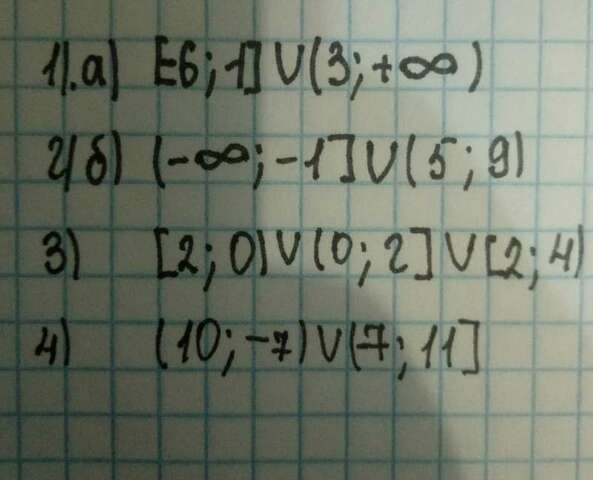 1). а) [-6; 1] ∪ (3; +∞)
2) б) (-∞; -1] ∪ (5; 9)
3) [2; 0) ∪ (0; 2] ∪ [2; 4)
4) (10; -7) ∪ (7; 11]